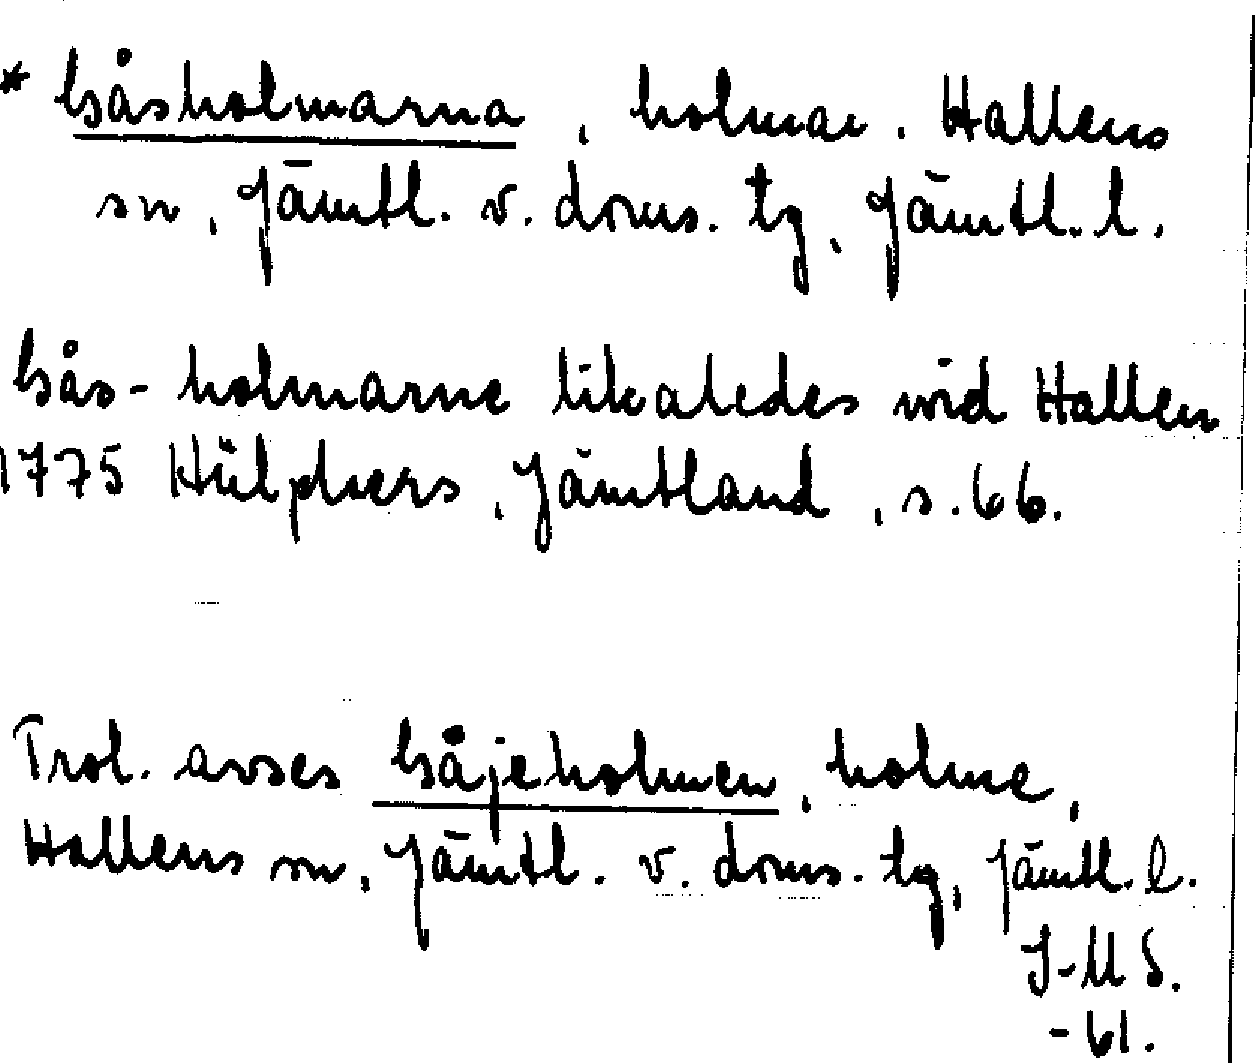 * Gåsholmarna, holmar. Hallens
sn, Jämtl. v. doms. tg, Jämtl. l.
Gås-holmarne likaledes wid Hallen
1775 Hülphers, Jämtland, s. 66.
Trol. avses Gåjeholmen, holme,
Hallens sn, Jämtl. v. doms. tg, Jämtl. l.
I-M S.
-61.